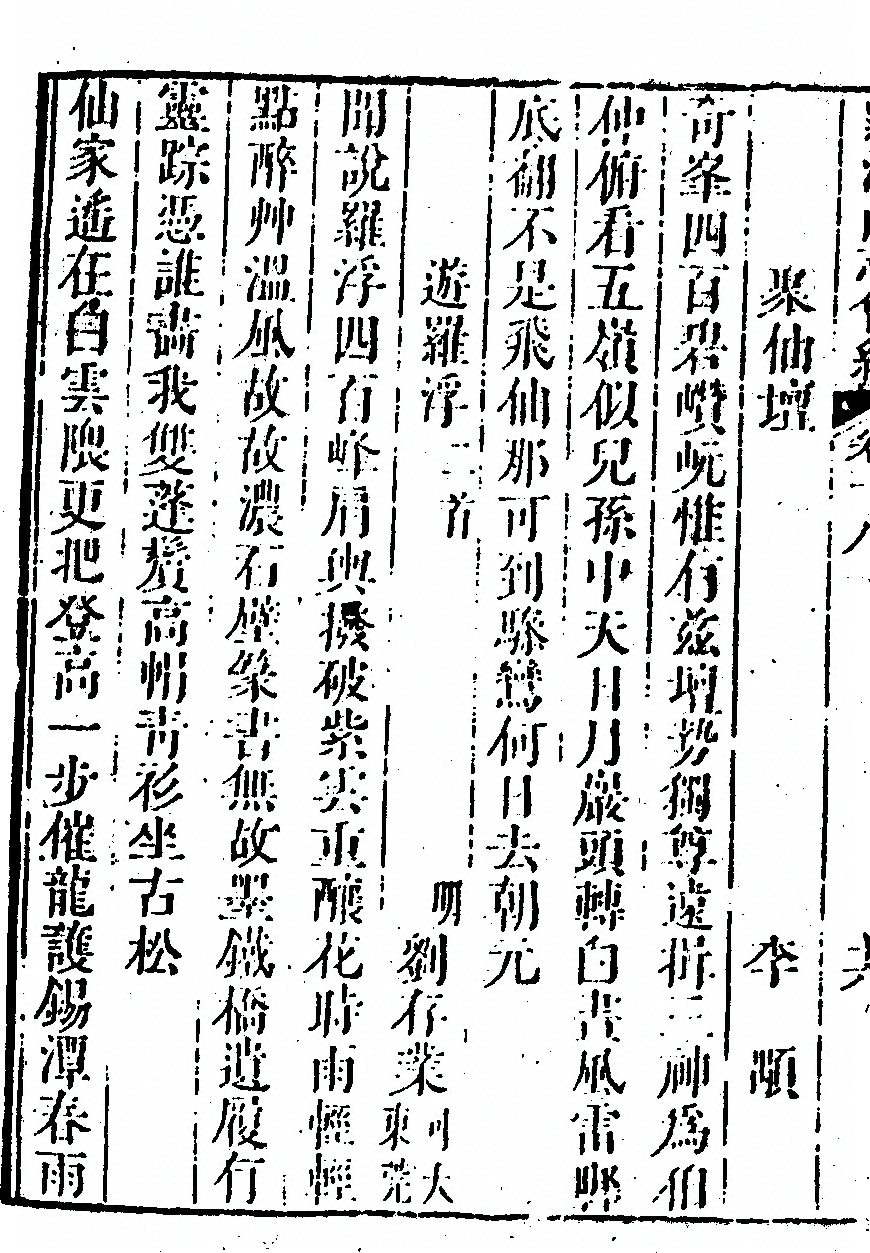 聚仙壇 李
奇峯四百碧巑岏惟有茲壇勢獨尊遠揖三神為伯
仲俯看五嶺似兒孫中天日月巖頭轉白晝風雷
底翻不是飛仙那可到驂鸞何日去朝元
遊羅浮二首 明劉存業可大東莞
聞說羅浮四百峰肩輿撥破紫雲重釀花時雨輕輕
點醉艸溫風故故濃石壁篆書無故墨鐵橋遺履行
靈踪憑誰畵我雙蓬鬢高帽青衫坐古松
仙家遙在白雲隈更把登高一步催龍護錫潭春雨